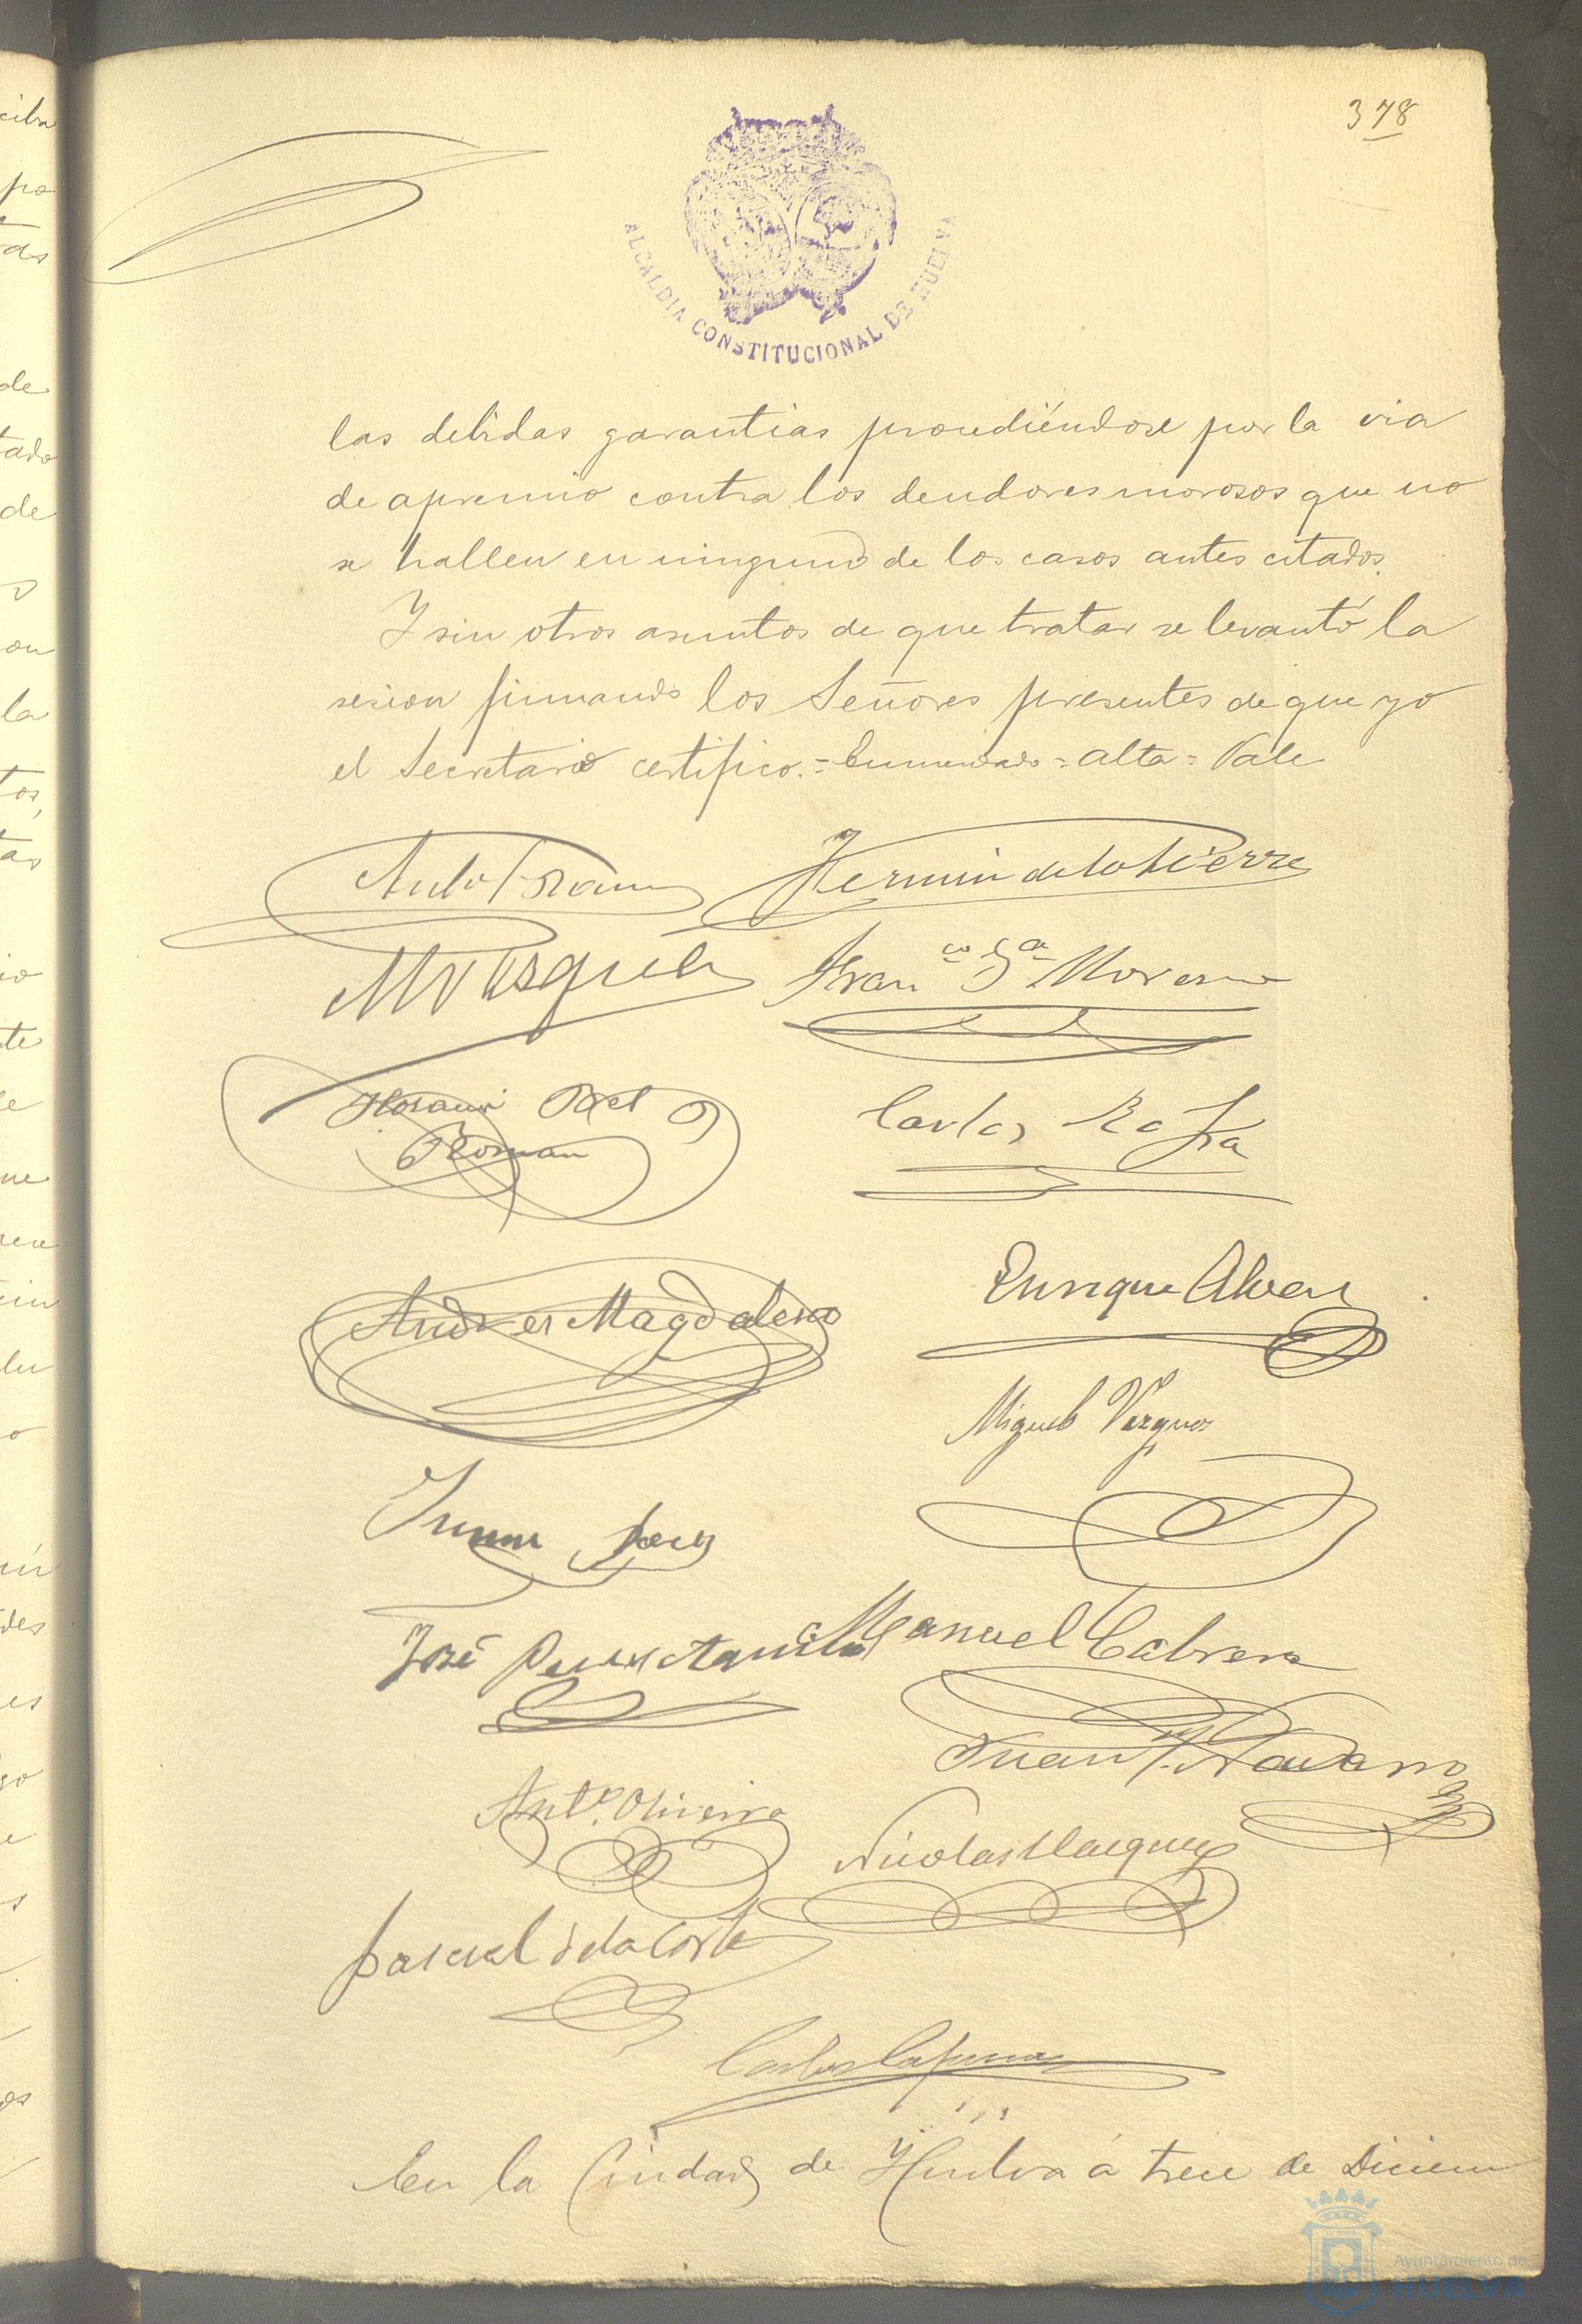 378
ALCALDIA CONSTITUCIONAL DE HUELVA
las debidas garantias procediéndose por la via
de apremio contra los deudores morosos que no
se hallen en ninguno de los casos antes citados.
Y sin otros asuntos de que tratar se levantó la
sesion firmando los Señores presentes de que yo
el Secretario certifico. = Enmendado = alta = Vale
Fermin de la Sierra
M Vasquez
Fran.co G.a Moreno
Roman
Carlos
Andres Magdaleno
Enrique
Miguel Vazquez
José Perez
Manuel Cabrera
Juan Navarro
Ant.o Oliveira
Nicolas Vazquez
Pascual de la Corte
Carlos
En la Ciudad de Huelva á trece de Diciem
Ayuntamiento de
HUELVA